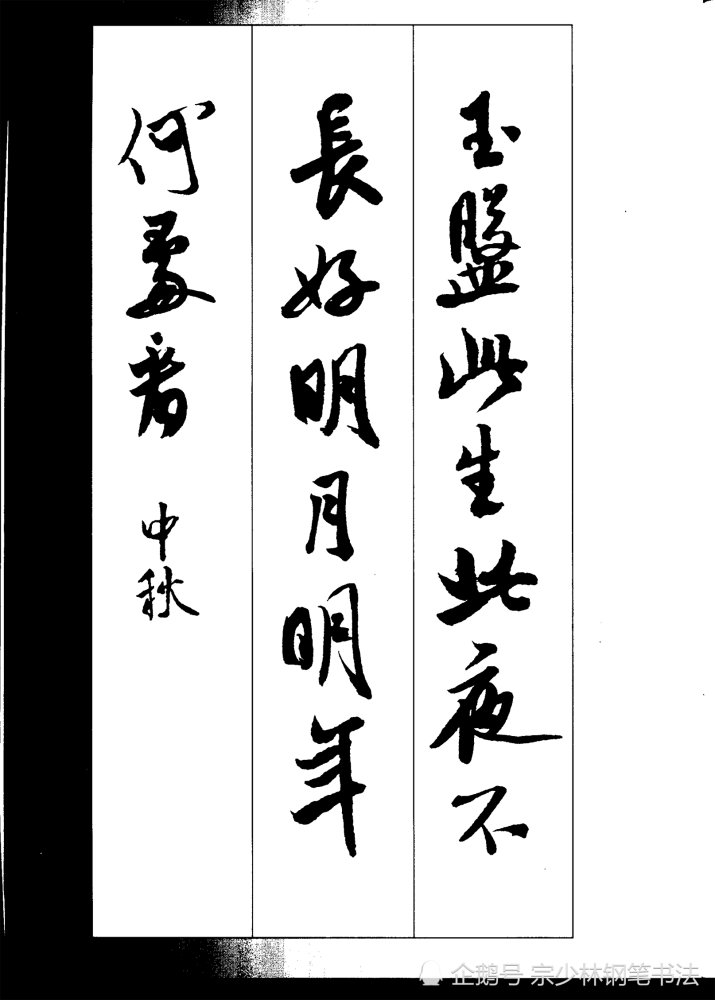 玉盤此生此夜不
長好明月明年
何處看
中秋
企鹅号 宗少林钢笔书法